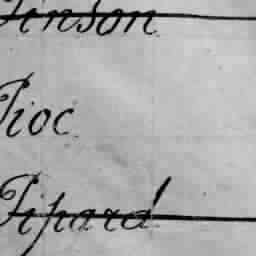 Pinson
Pioc
Pipard